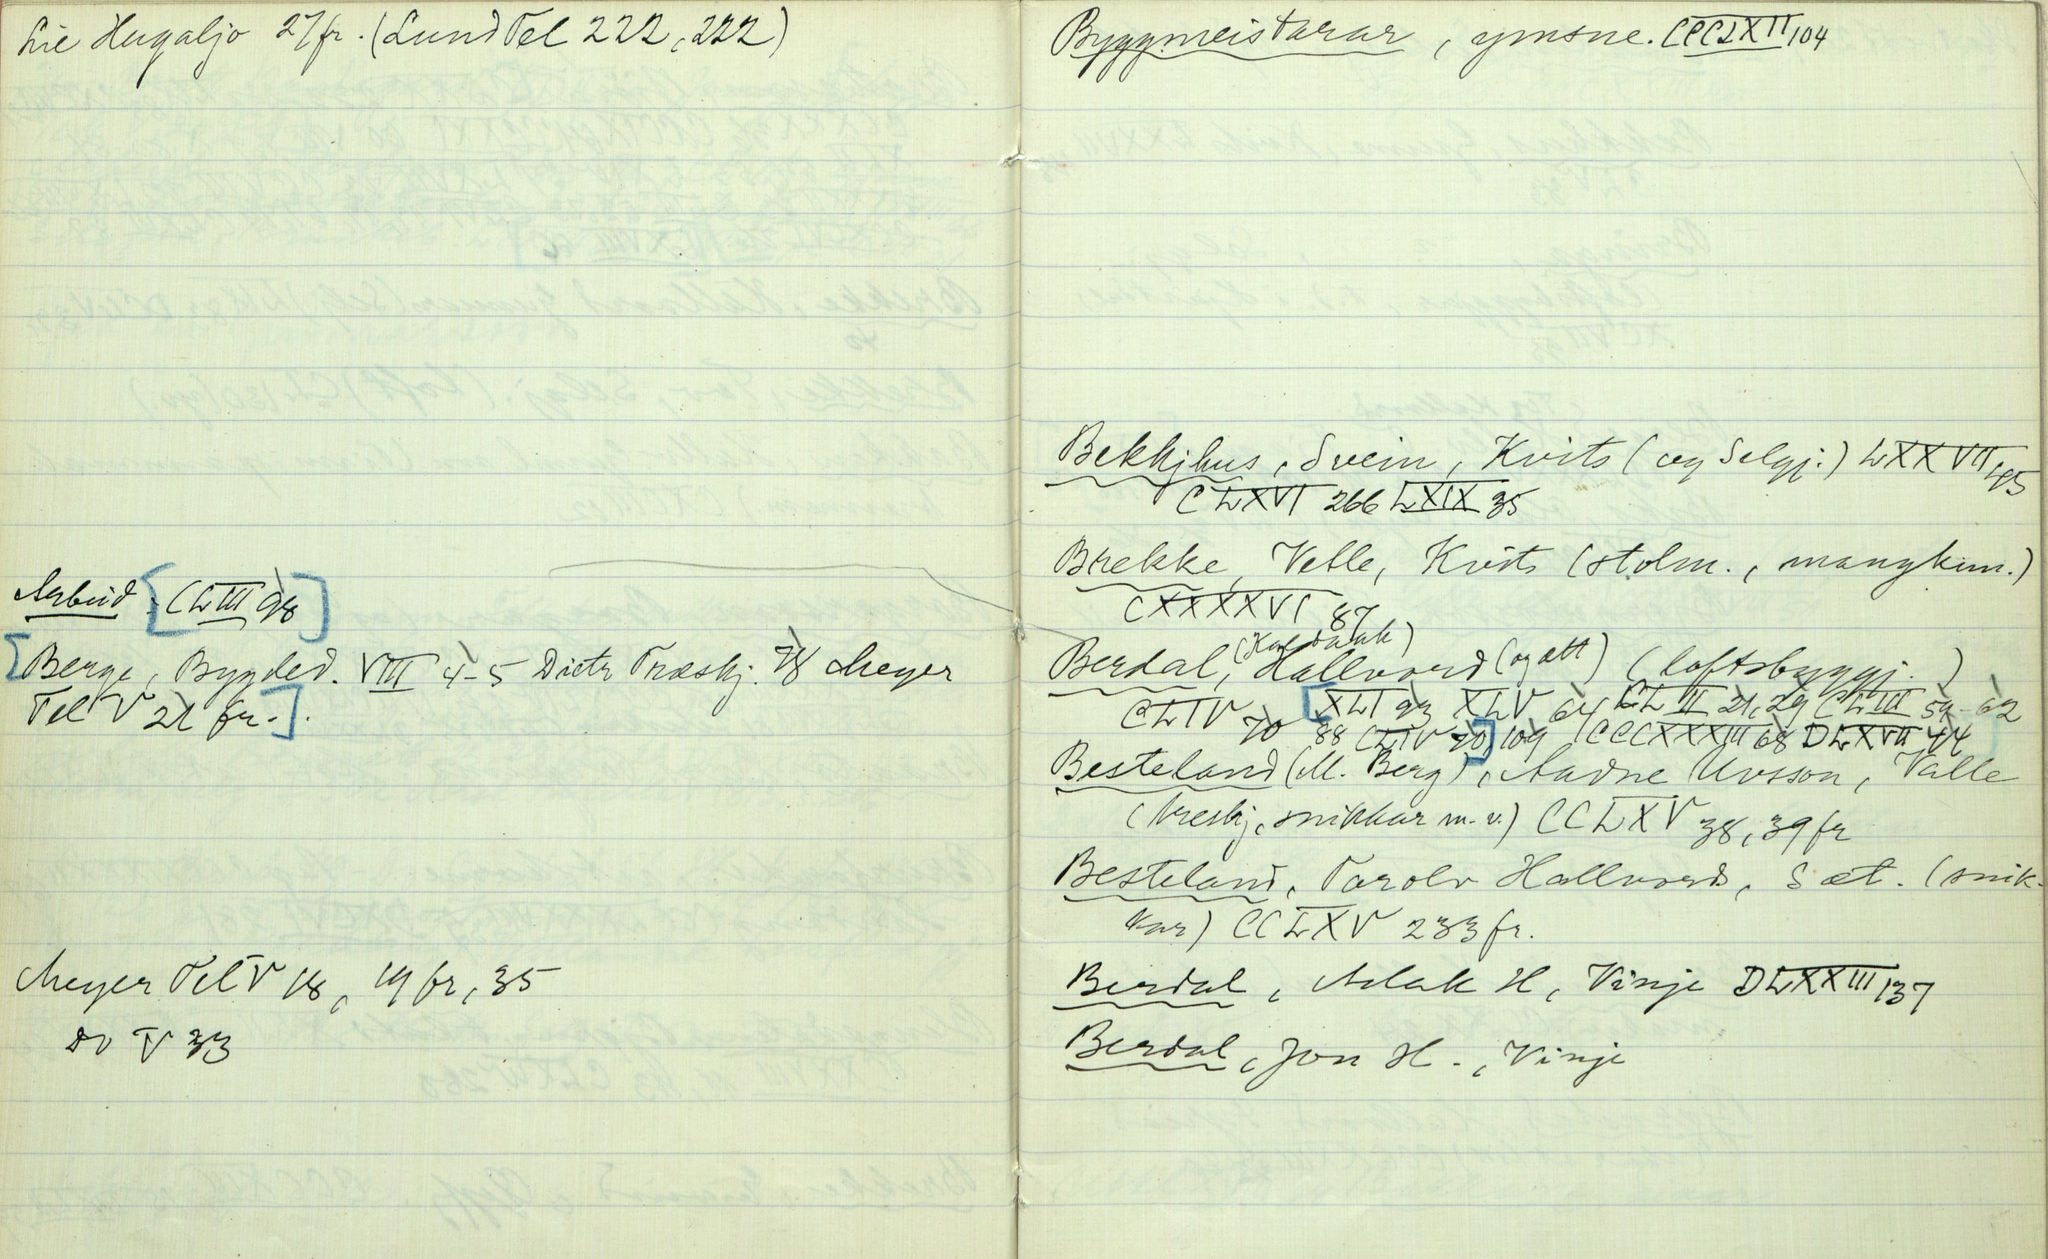 Lie Hugaljo 27 fr. (Lund Tel 222, 222)
Arbeid [CLIII 98]
[Berge, Bygded. VIII 4-5 Dietr Træskj. 78 Meyer
Tel V 21 fr.]
Meyer Tel V 18, 19 fr, 35
Do V 33
Byggmeistarar, ymsne. CCCLXII 104
Bekkjhus, Svein, Kvits (og Selgj.) LXXVII 45
CLXVI 266 LXIX 35
Brekke, Vetle, Kvits (stolm., mangkun.)
CXXXXVI 87
Berdal, Hallvord (og ått) (loftsbyggj.)
CLIV 70 [XLI 93 XLV 64 CLII 21, 29 CLIII 59-62
88 CLIV 70] 109 CCCXXXIII 68 DLXVII 44
Besteland (M. Berg), Aadne Uvsson, Valle
(treskj, snikkar m.v.) CCLXV 38, 39 fr
Besteland, Tarolv Hallvords, Sæt. (snik-
kar) CCLXV 233 fr.
Berdal, Aslak H, Vinje DLXXIII 137
Berdal, Jon H., Vinje